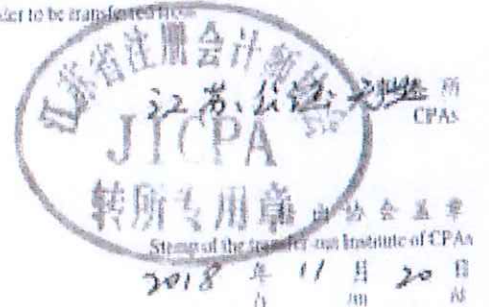 to be transferred from
江苏省注册会计师协会
江苏公证
所
CPAs
JICPA
转所专用章
协会盖章
Stamp of the transfer-out Institute of CPAs
2018 年 11 月 20 日
/y /m /d